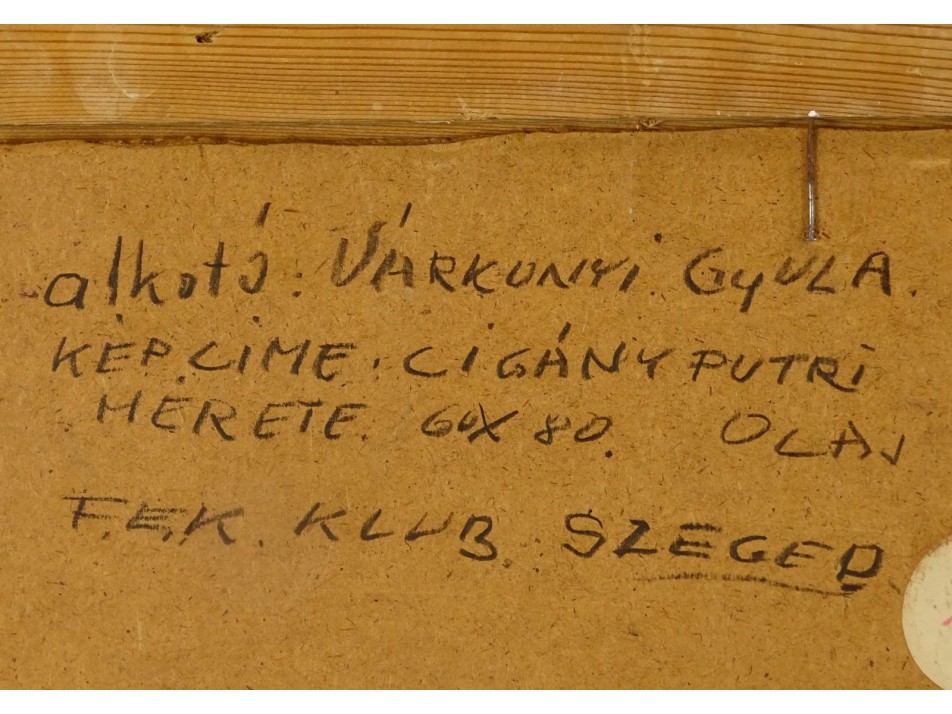 alkotó. VÁRKONYI GYULA.
KÉP CIME. CIGÁNYPUTRI
MÉRETE. 60X80. OLAJ
F.E.K. KLUB. SZEGED